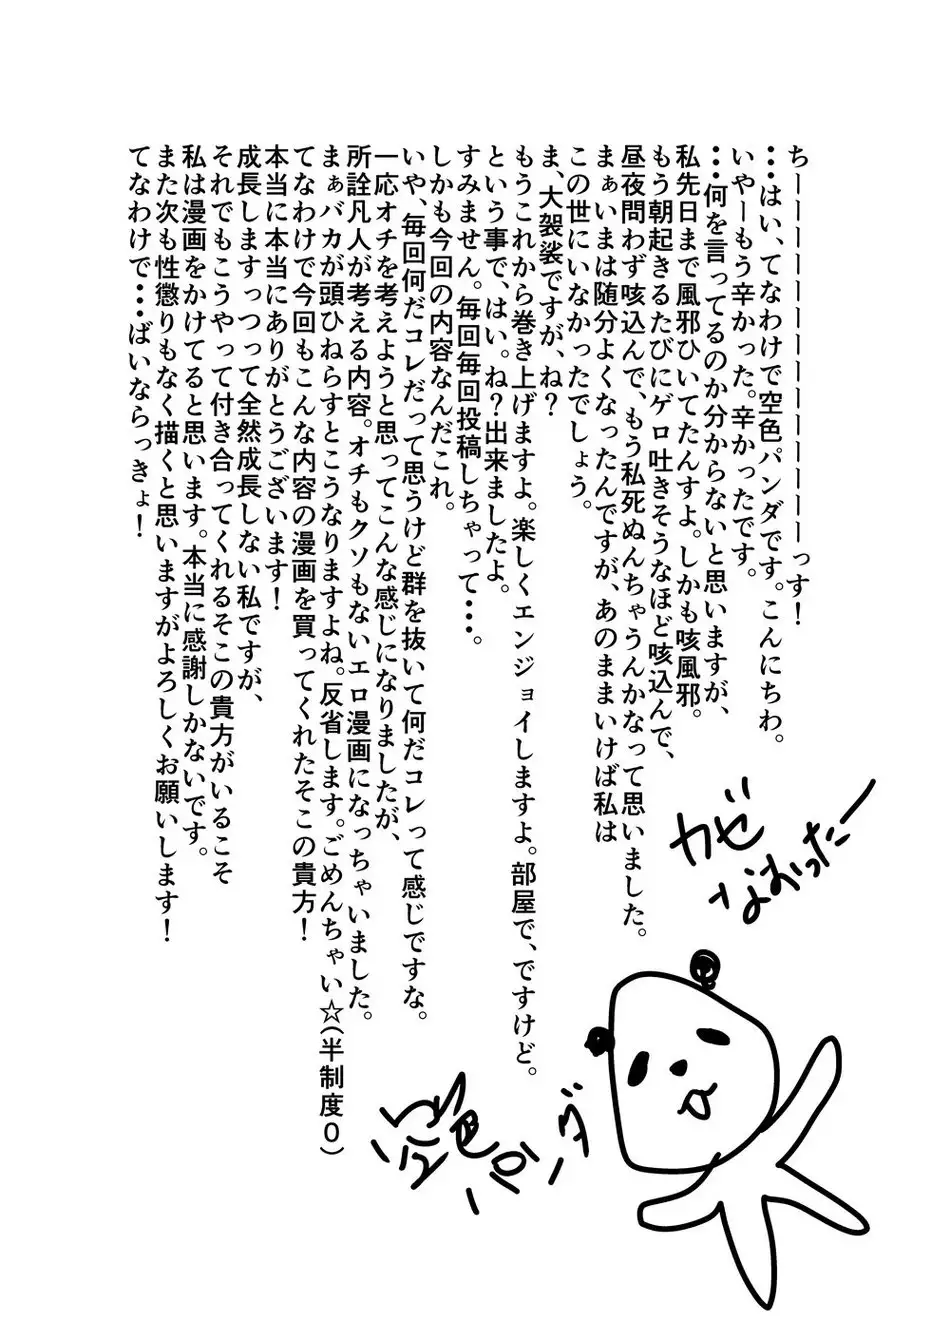 ちーーーーーーーーーーーーっす！
・・・はい、てなわけで空色パンダです。こんにちわ。
いやーもう辛かった。辛かったです。
・・・何を言ってるのか分からないと思いますが、
私先日まで風邪ひいてたんすよ。しかも咳風邪。
もう朝起きるたびにゲロ吐きそうなほど咳込んで、
昼夜問わず咳込んで、もう私死ぬんちゃうんかなって思いました。
まぁいまは随分よくなったんですが、あのままいけば私は
この世にいなかったでしょう。
ま、大袈裟ですが、ね？
もうこれから巻き上げますよ。楽しくエンジョイしますよ。部屋で、ですけど。
という事で、はい。ね？出来ましたよ。
すみません。毎回毎回投稿しちゃって・・・。
しかも今回の内容なんだこれ。
いや、毎回何だコレだって思うけど群を抜いて何だコレって感じですな。
一応オチを考えようと思ってこんな感じになりましたが、
所詮凡人が考える内容。オチもクソもないエロ漫画になっちゃいました。
まぁバカが頭ひねらすとこうなりますよね。反省します。ごめんちゃい☆(半制度0)
てなわけで今回もこんな内容の漫画を買ってくれたそこの貴方！
本当に本当にありがとうございます！
成長しますっつって全然成長しない私ですが、
それでもこうやって付き合ってくれるそこの貴方がいるこそ
私は漫画をかけてると思います。本当に感謝しかないです。
また次も性懲りもなく描くと思いますがよろしくお願いします！
てなわけで・・・ばいならっきょ！
カゼ
なおったー
空色パンダ